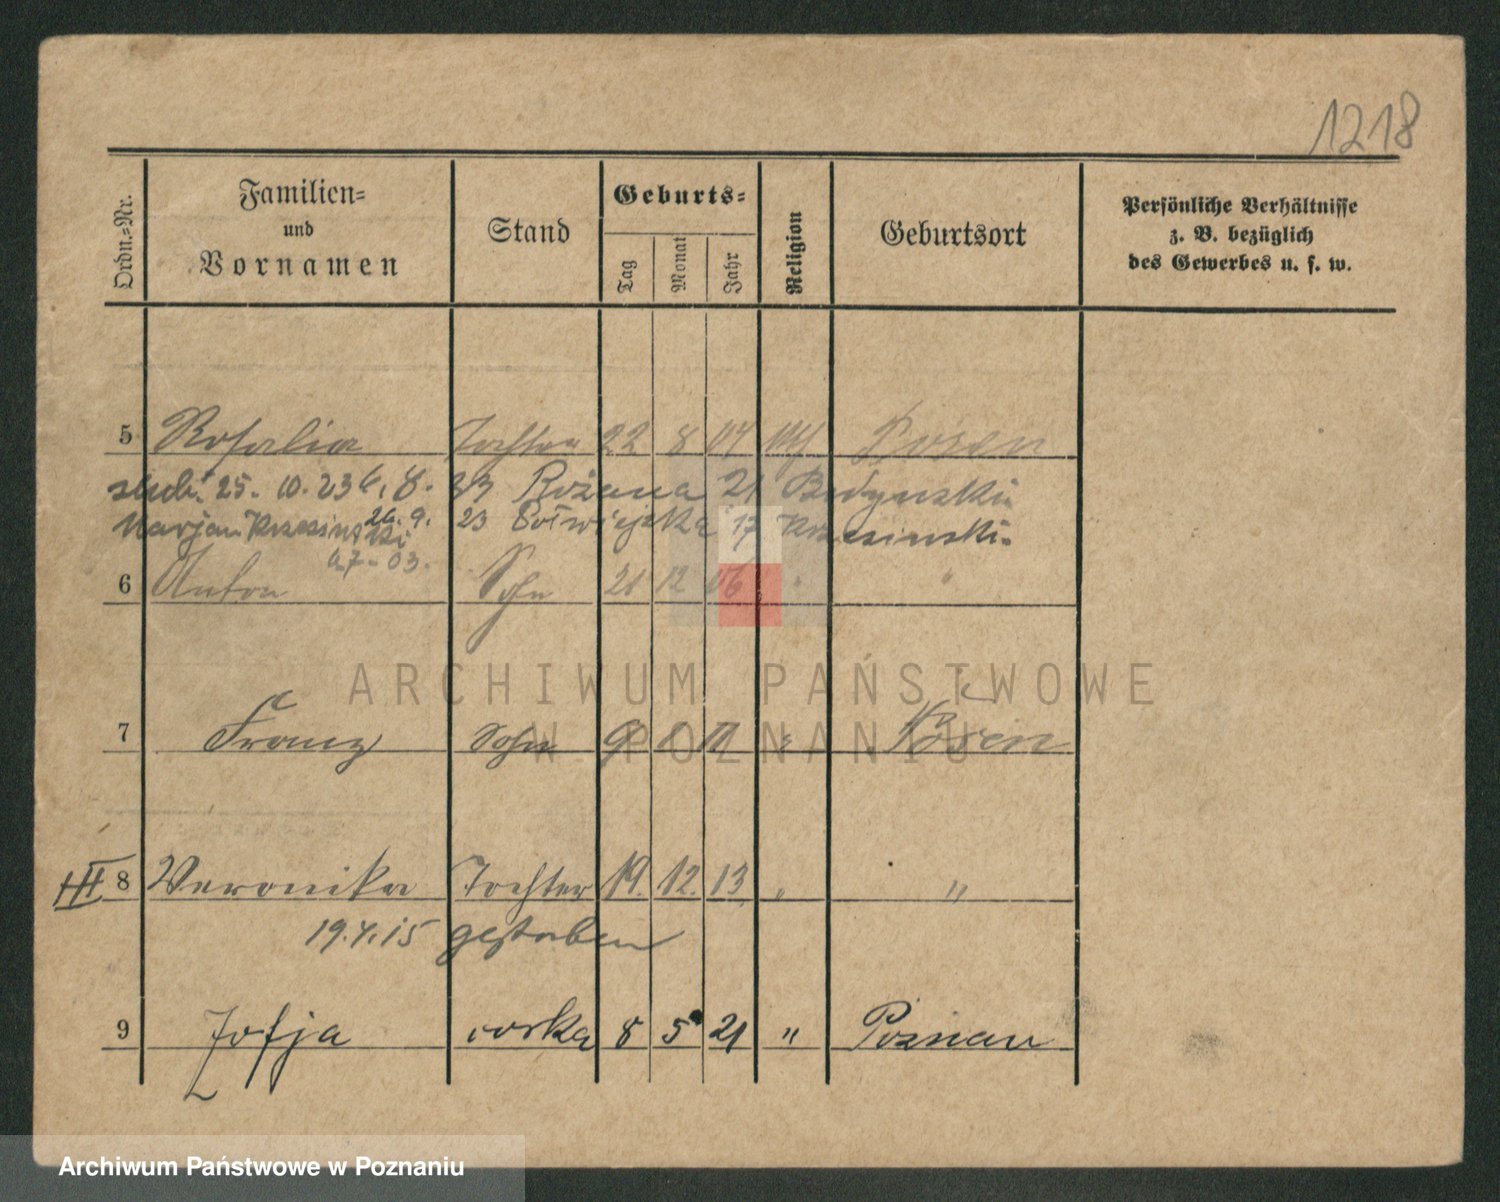 1218
Ordn.=Nr.
Familien=
und
Vornamen
Stand
Geburts=
Tag
Monat
Jahr
Religion
Geburtsort
Persönliche Verhältnisse
z. B. bezüglich
des Gewerbes u. s. w.
5 Rosalia Tochter 22 8 04 Posen
25. 10. 23 6. 8. 33 Różana 21 Budzynski
Marjan Krzesinski 26. 9. 23 Półwiejska 17 Krzesinski
6.7-03.
6 Anton Sohn 21 12 06 " "
7 Franz Sohn 9 11 " Posen
III 8 Veronika Tochter 19. 12. 13 " "
19.4.15 gestorben
9 Zofja corka 8 5 21 " Poznań
ARCHIWUM PAŃSTWOWE
W POZNANIU
Archiwum Państwowe w Poznaniu